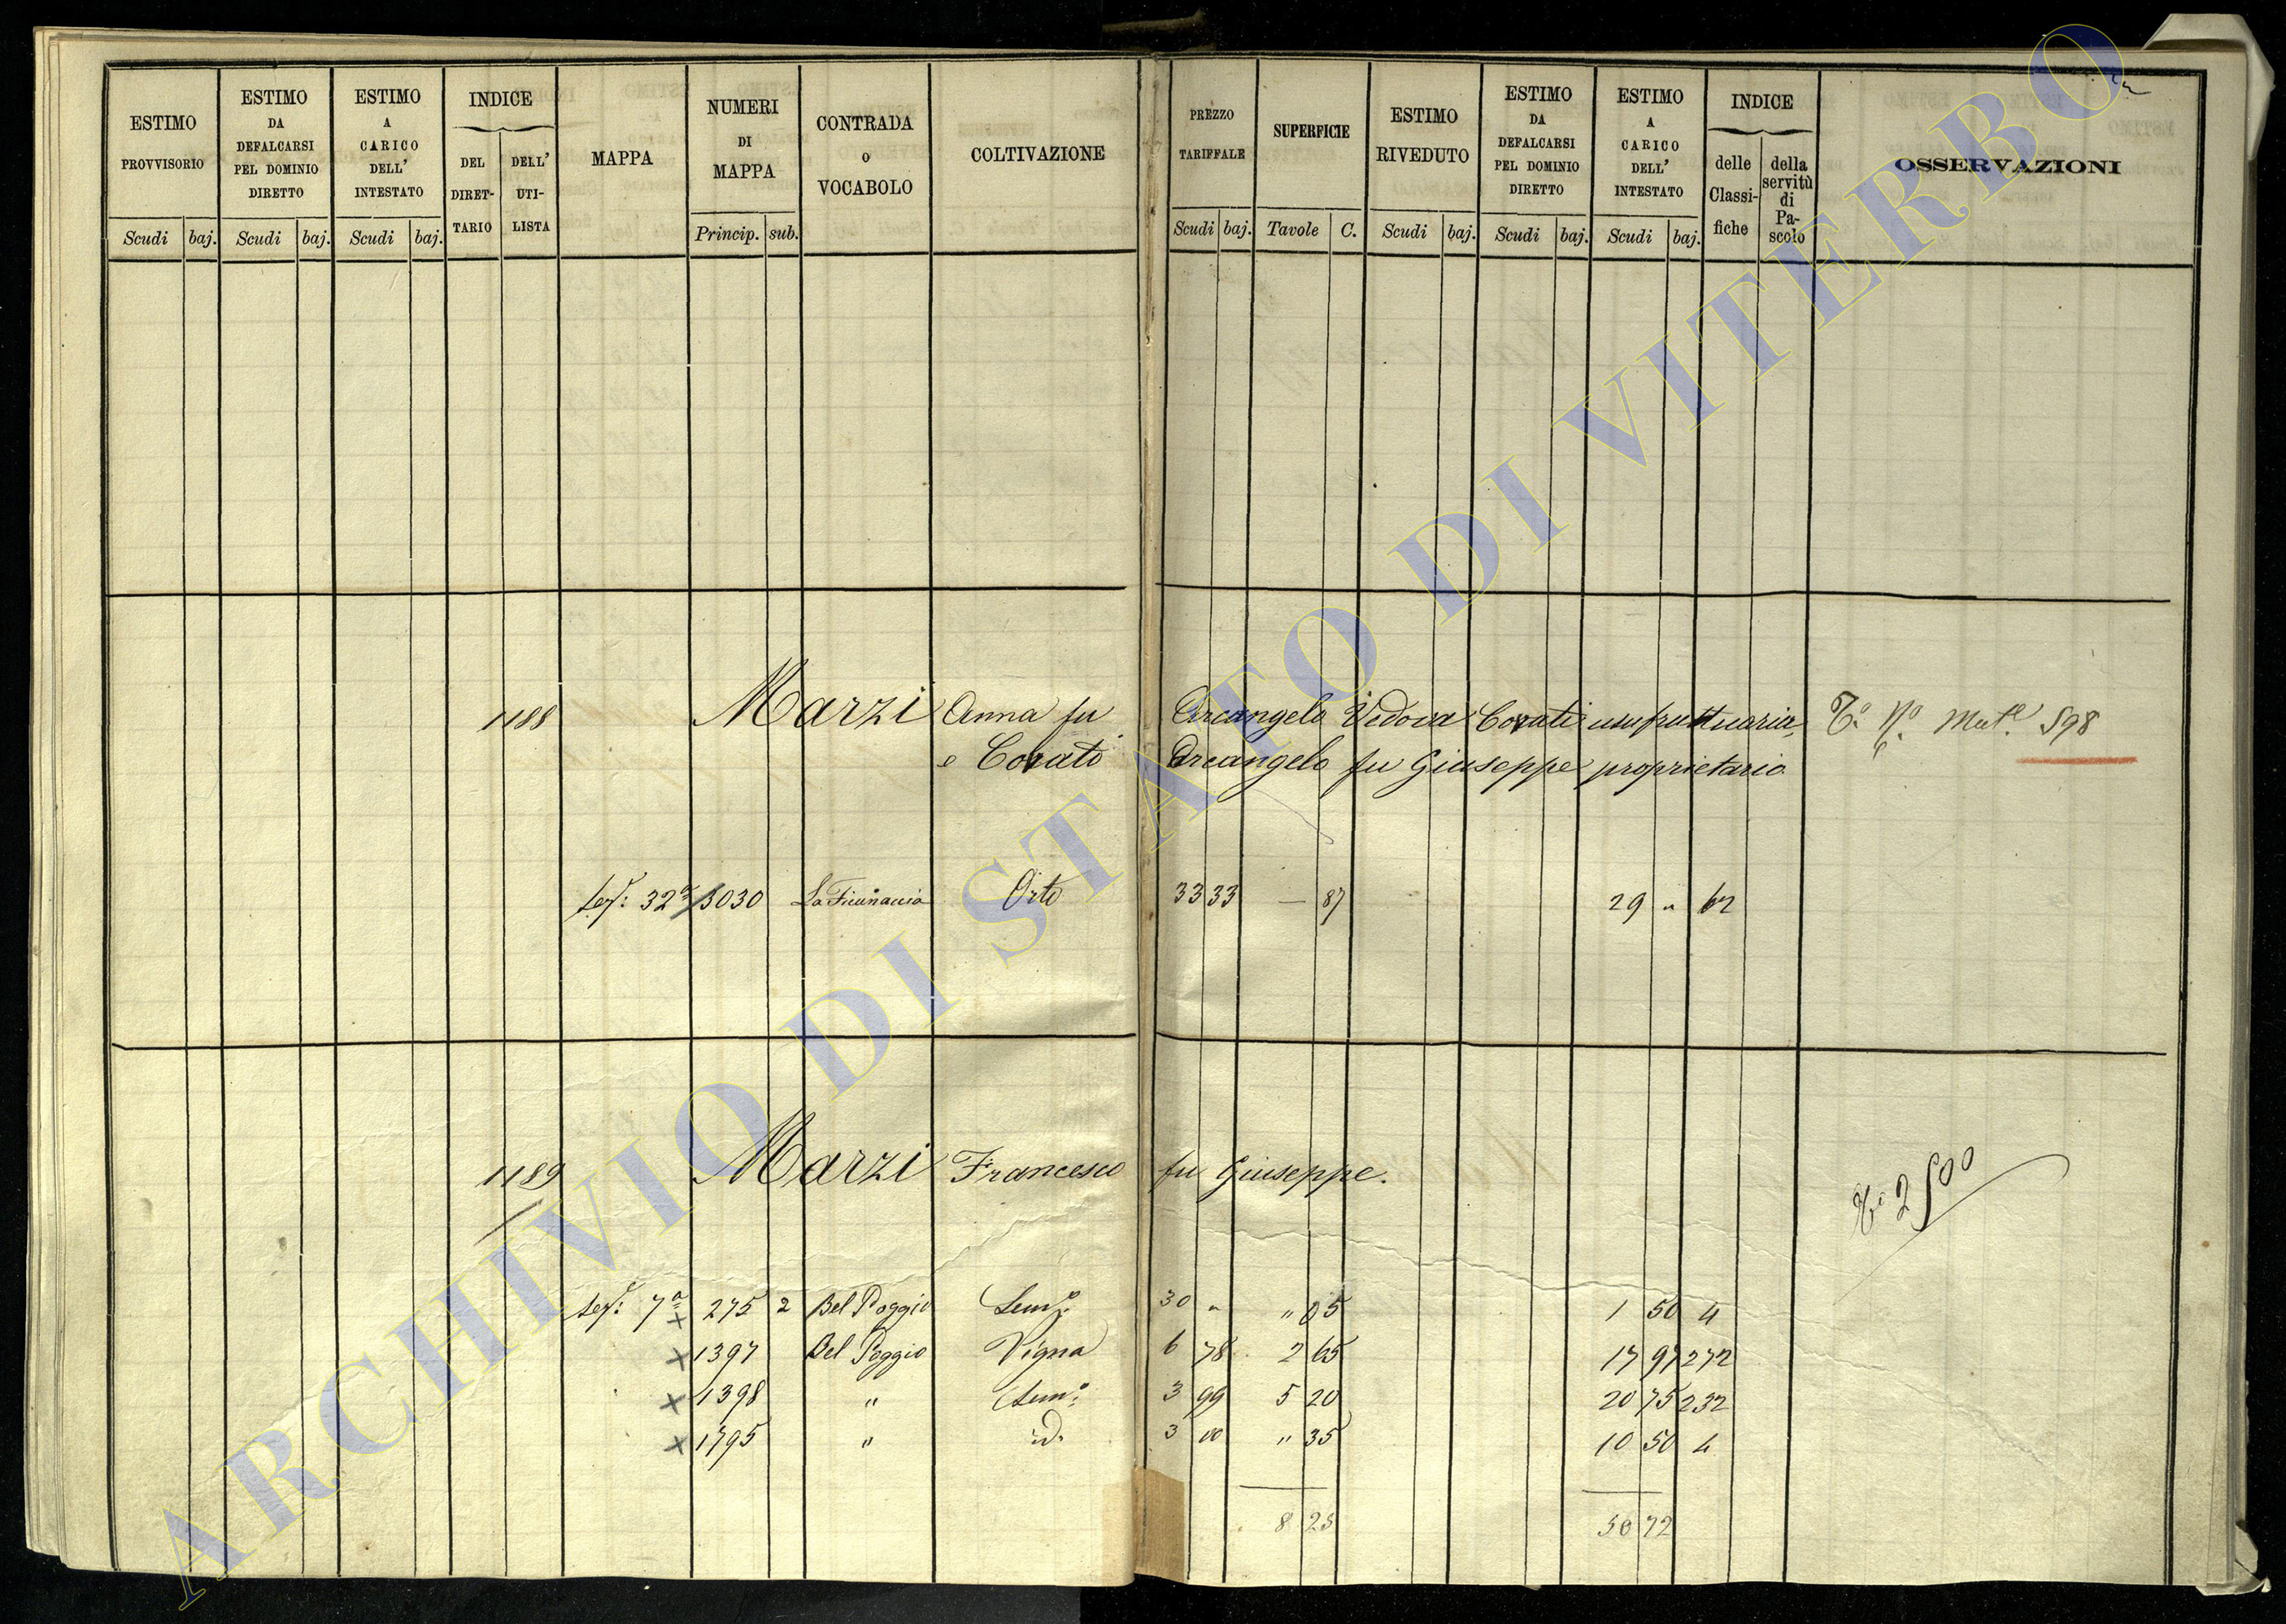 ESTIMO PROVVISORIO
Scudi baj.
ESTIMO DA DEFALCARSI PEL DOMINIO DIRETTO
Scudi baj.
ESTIMO A CARICO DELL' INTESTATO
Scudi baj.
INDICE
DEL DIRET- TARIO
DELL' UTI- LISTA
MAPPA
NUMERI DI MAPPA
Princip. sub.
CONTRADA o VOCABOLO
COLTIVAZIONE
PREZZO TARIFFALE
Scudi baj.
SUPERFICIE
Tavole C.
ESTIMO RIVEDUTO
Scudi baj.
ESTIMO DA DEFALCARSI PEL DOMINIO DIRETTO
Scudi baj.
ESTIMO A CARICO DELL' INTESTATO
Scudi baj.
INDICE
delle Classi- fiche
della servitù di Pa- scolo
OSSERVAZIONI
1188 Marzi Anna fu Arcangelo Vedova Corati usufruttuaria,
e Corati Arcangelo fu Giuseppe proprietario
598
32ª 3030 Orto 33 33 — 87 29 " 62
1189 Marzi Francesco fu Giuseppe.
2500
7ª 275 2 Bel Poggio Semº 30 " " 05 1 50 4
1397 Bel Poggio Vigna 6 78 2 65 17 97 272
1398 " Semº 3 99 5 20 20 75 232
1795 " id. 3 00 " 35 10 50 4
8 25 50 72
ARCHIVIO DI STATO DI VITERBO